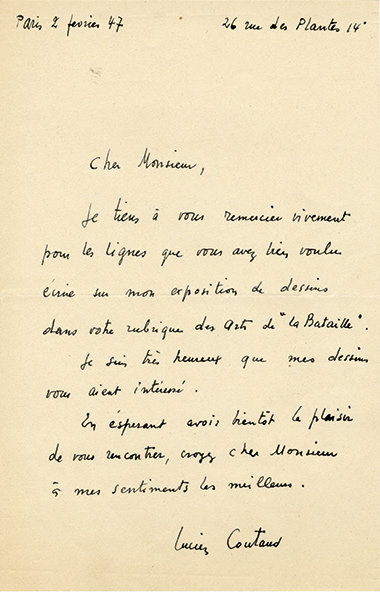 Paris 2 fevrier 47
26 rue des Plantes 14°
Cher Monsieur,
Je tiens à vous remercier vivement
pour les lignes que vous avez bien voulu
écrire sur mon exposition de dessins
dans votre rubrique des Arts de "la Bataille".
Je suis très heureux que mes dessins
vous aient intéressé.
En ésperant avoir bientôt le plaisir
de vous rencontrer, croyez cher Monsieur
à mes sentiments les meilleurs.
Lucien Coutaud